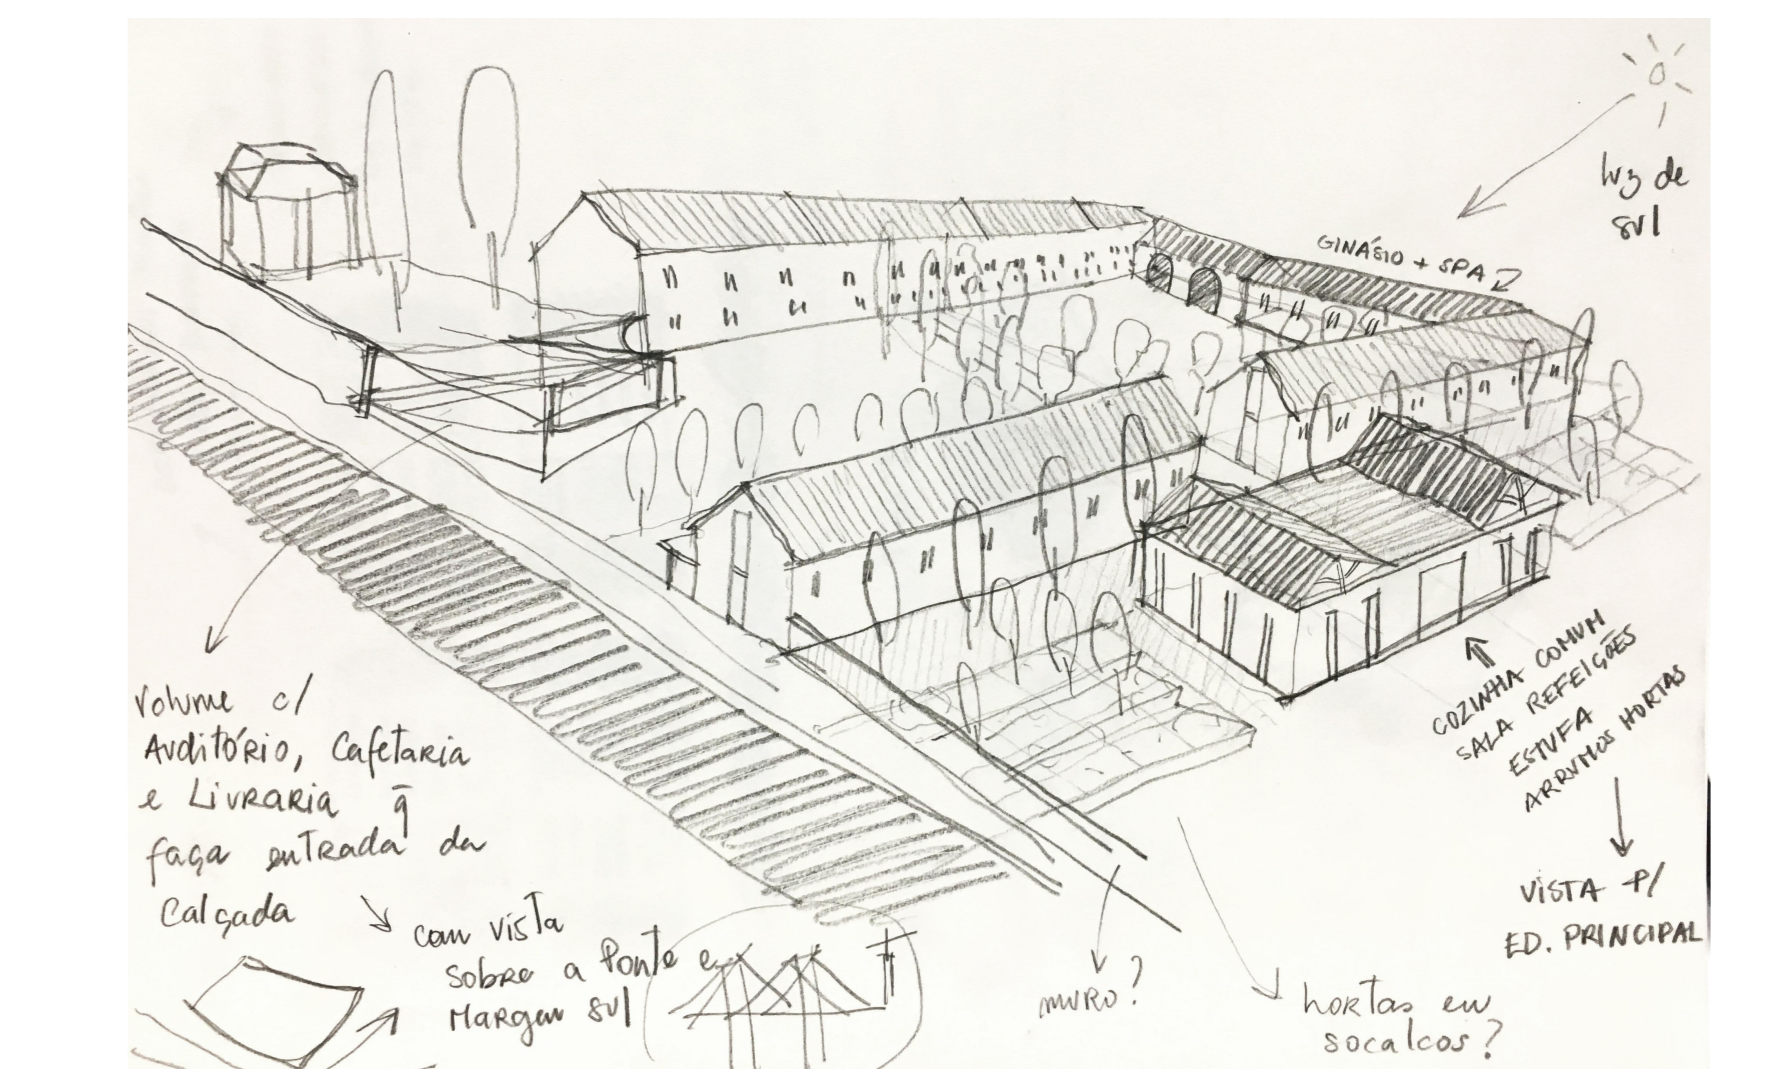 luz de
sul
GINÁSIO + SPA
COZINHA COMUM
SALA REFEIÇÕES
ESTUFA
ARRUMOS HORTAS
VISTA P/
ED. PRINCIPAL
Volume c/
Auditório, Cafetaria
e Livraria q̄
faça entrada da
Calçada
com vista
sobre a Ponte e
Margem sul
muro?
hortas em
socalcos?